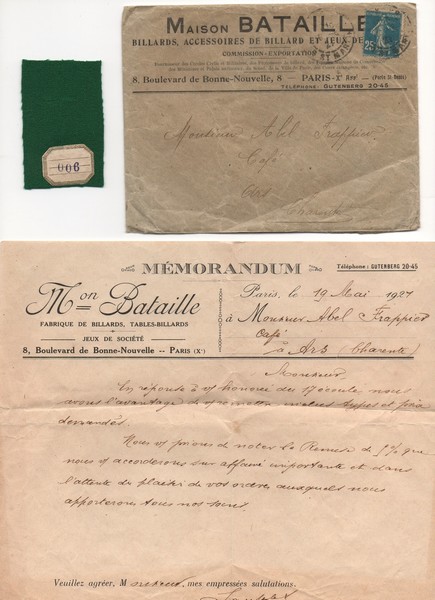 MAISON BATAILLE
BILLARDS, ACCESSOIRES DE BILLARD ET JEUX DE
COMMISSION-EXPORTATION
8, Boulevard de Bonne-Nouvelle, 8 - PARIS-Xe Arrt (Porte St-Denis)
TÉLÉPHONE: GUTENBERG 20-45
25
Monsieur Abel Frappier
Café
Ars
Charente
006
MÉMORANDUM
Téléphone: GUTENBERG 20-45
Mon Bataille
FABRIQUE DE BILLARDS, TABLES-BILLARDS
JEUX DE SOCIÉTÉ
8, Boulevard de Bonne-Nouvelle -- PARIS (Xe)
Paris, le 19 Mai 1927
à Monsieur Abel Frappier
Café
à Ars (Charente)
Monsieur
En réponse à v/ honorée du 17 écoulé, nous
avons l'avantage de vous remettre inclus types et prix
demandés.
Nous v/ prions de noter la Remise de 5% que
nous v/ accorderons sur affaire importante et dans
l'attente du plaisir de vos ordres auxquels nous
apporterons tous nos soins
Veuillez agréer, Monsieur, mes empressées salutations.